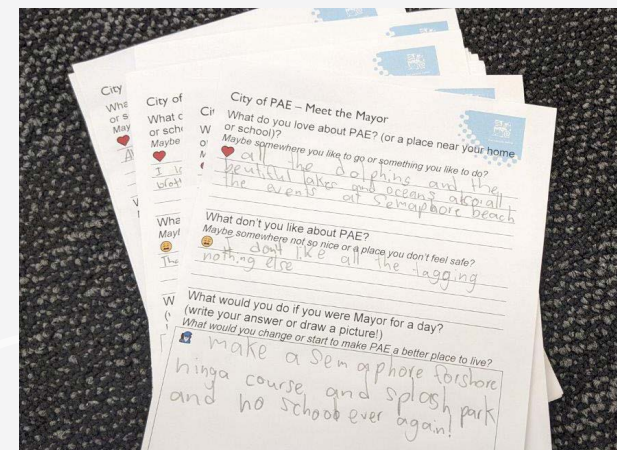 City
Wha
or s
May
City of
What c
or scho
Maybe
I
brot
Wha
Mayl
The
W
City of PAE – Meet the Mayor
What do you love about PAE? (or a place near your home
or school)?
Maybe somewhere you like to go or something you like to do?
all the dolphins and the
beutiful lakes and oceans also all
the events at Semaphore beach
What don't you like about PAE?
Maybe somewhere not so nice or a place you don't feel safe?
I dont like all the tagging
nothing else
What would you do if you were Mayor for a day?
(write your answer or draw a picture!)
What would you change or start to make PAE a better place to live?
make a Semaphore forshore
ninga course and splash park
and no school ever again!